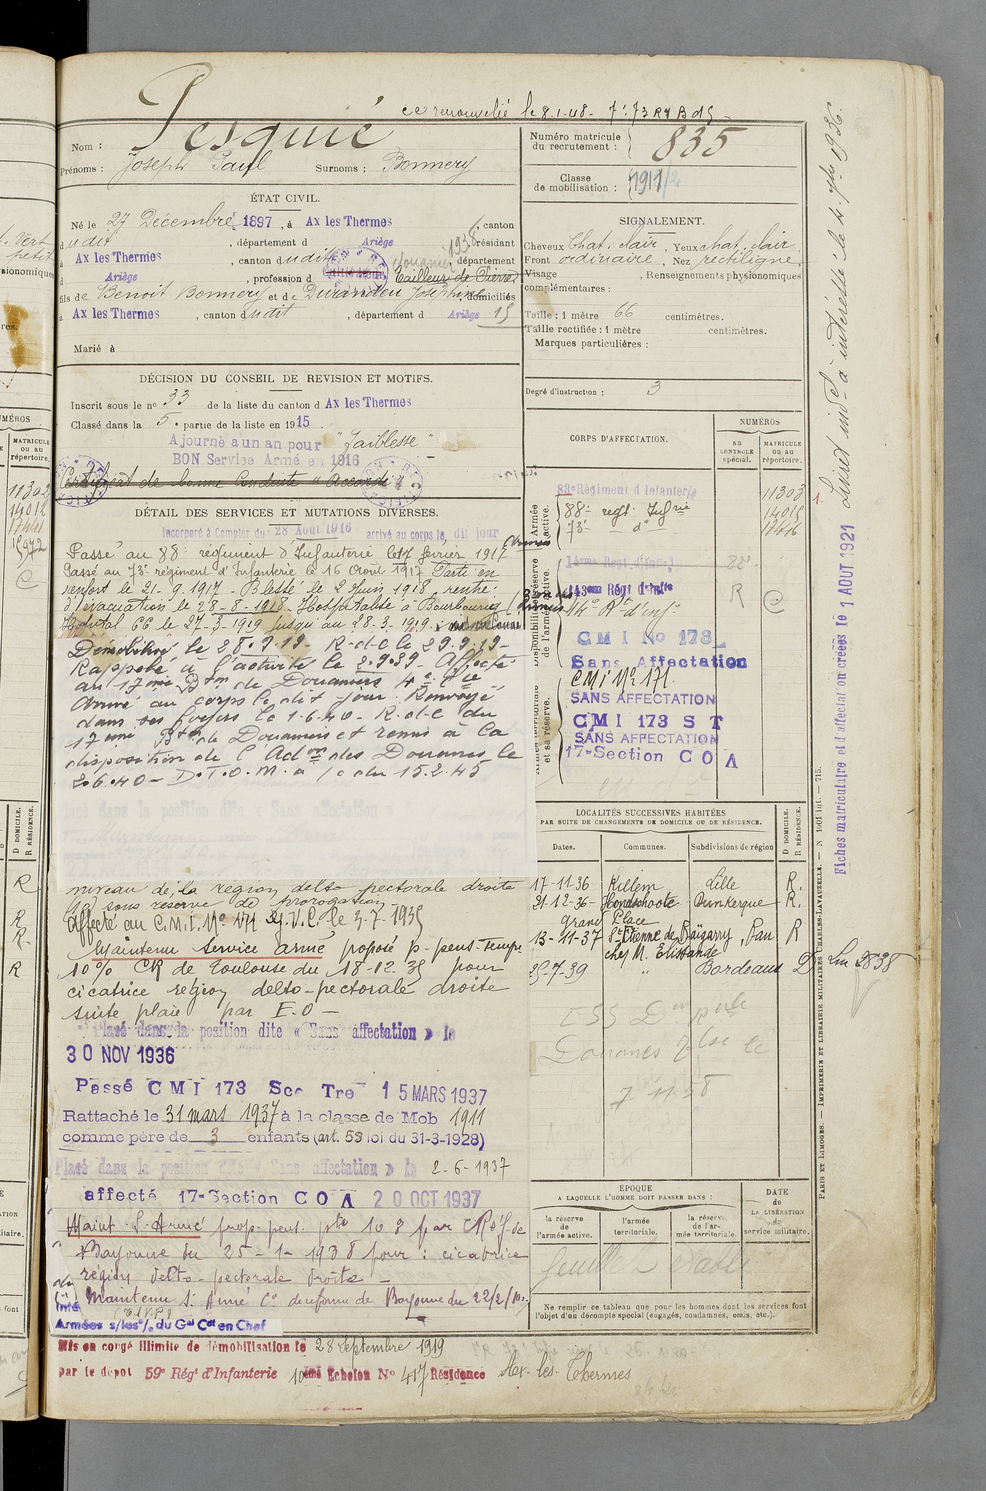 renouvelé le 8.1.48 -
Nom : Pesquié
Prénoms : Joseph Paul Surnoms : Bonnery
Numéro matricule du recrutement : 835
Classe de mobilisation : 1911/2
ÉTAT CIVIL.
Né le 27 Décembre 1897, à Ax les Thermes, canton
dudit, département d Ariège, résidant
à Ax les Thermes, canton dudit, département
d Ariège, profession d Tailleur de Pierre
douanier 1938
fils de Benoit Bonnery et de Durandeu Joséphine domiciliés
à Ax les Thermes, canton dudit, département d Ariège 15
Marié à
SIGNALEMENT.
Cheveux Chat. clair, Yeux chat. clair
Front ordinaire, Nez rectiligne
Visage , Renseignements physionomiques
complémentaires :
Taille : 1 mètre 66 centimètres.
Taille rectifiée : 1 mètre centimètres.
Marques particulières :
Degré d'instruction : 3
DÉCISION DU CONSEIL DE REVISION ET MOTIFS.
Inscrit sous le no 33 de la liste du canton d Ax les Thermes
Classé dans la 5e partie de la liste en 1915.
Ajourné à un an pour "faiblesse"
BON Service Armé en 1916
Certificat de bonne Conduite "Accordé"
DÉTAIL DES SERVICES ET MUTATIONS DIVERSES.
Incorporé à Compter du 28 Août 1916 arrivé au corps le dit jour
Passé au 88e régiment d'Infanterie le 17 février 1917
Passé au 73e régiment d'Infanterie le 16 Août 1917 Parti en
renfort le 21-9-1917 - Blessé le 2 Juin 1918, rentré
d'évacuation le 28-8-1918. Hospitalisé à Bourbourg
Hôpital CC le 27-3-1919 jusqu'au 28-3-1919.
Démobilisé le 28.9.19 - R-d-c le 29.9.19 -
Rappelé à l'activité le 2.9.39 - Affecté
au 17ème Btn de Douaniers 4e Cie
Arrivé au corps le dit jour. Renvoyé
dans ses foyers le 1.6.40 - R.d.c du
17ème Btn de Douanes et remis à la
disposition de l'Adon des Douanes le
2.6.40 - D.T.O.M. a/c du 15.2.45
niveau de la région delto pectorale droite
sous réserve de prorogation
Affecté au C.M.I. No 171 le 3-7-1935
Maintenu service armé proposé p- pens- temp-
10% CR de Toulouse du 18-12-35 pour
cicatrice région delto-pectorale droite
suite plaie par E.O -
Placé dans la position dite « Sans affectation » le
30 NOV 1936
Passé CMI 173 Sec Tre 15 MARS 1937
Rattaché le 31 mars 1937 à la classe de Mob 1911
comme père de 3 enfants (art. 58 loi du 31-3-1928)
Placé dans la position dite « Sans affectation » le 2-6-1937
affecté 17e Section COA 20 OCT 1937
Maint S. Armé prop. pens. pte 10 % par CR de
Bayonne du 25-1-1938 pour : cicatrice
région delto-pectorale droite -
Maintenu S. Armé Con de réforme de Bayonne du 22/2/
Armées s/les o/. du Gal Cdt en Chef
Mis en congé illimité de démobilisation le 28 Septembre 1919
par le dépôt 59e Régt d'Infanterie 10ème Echelon No 417 Résidence Ax-les-Thermes
CORPS D'AFFECTATION.
NUMÉROS
AU CONTRÔLE spécial.
MATRICULE OU AU répertoire.
Armée active.
83e Régiment d'Infanterie 11303
88e regt Infrie 14015
73e do 17446
Disponibilité et réserve de l'armée active.
143eme Régt d'Infrie R
CMI No 173
Sans Affectation
CMI No 171.
SANS AFFECTATION
CMI 173 S T
SANS AFFECTATION
17e Section COA
LOCALITÉS SUCCESSIVES HABITÉES
PAR SUITE DE CHANGEMENTS DE DOMICILE OU DE RÉSIDENCE.
Dates. Communes. Subdivisions de région D DOMICILE. R RÉSIDENCE.
17-11-36 Killem Lille R.
21-12-36 Hondschoote Dunkerque R.
Grand Place
13-11-37 St Etienne de Baïgorry Pau R
chez M. Elissalde
25-7-39 " Bordeaux D
Douanes
ÉPOQUE
A LAQUELLE L'HOMME DOIT PASSER DANS :
la réserve de l'armée active.
l'armée territoriale.
la réserve de l'armée territoriale.
DATE de LA LIBÉRATION du service militaire.
Ne remplir ce tableau que pour les hommes dont les services font
l'objet d'un décompte spécial (engagés, condamnés, omis, etc.).
Fiches matriculaire et d'affectation créées le 1 AOUT 1921
PARIS ET LIMOGES. — IMPRIMERIE ET LIBRAIRIE MILITAIRES CHARLES-LAVAUZELLE. — N 1001 int. — 715.